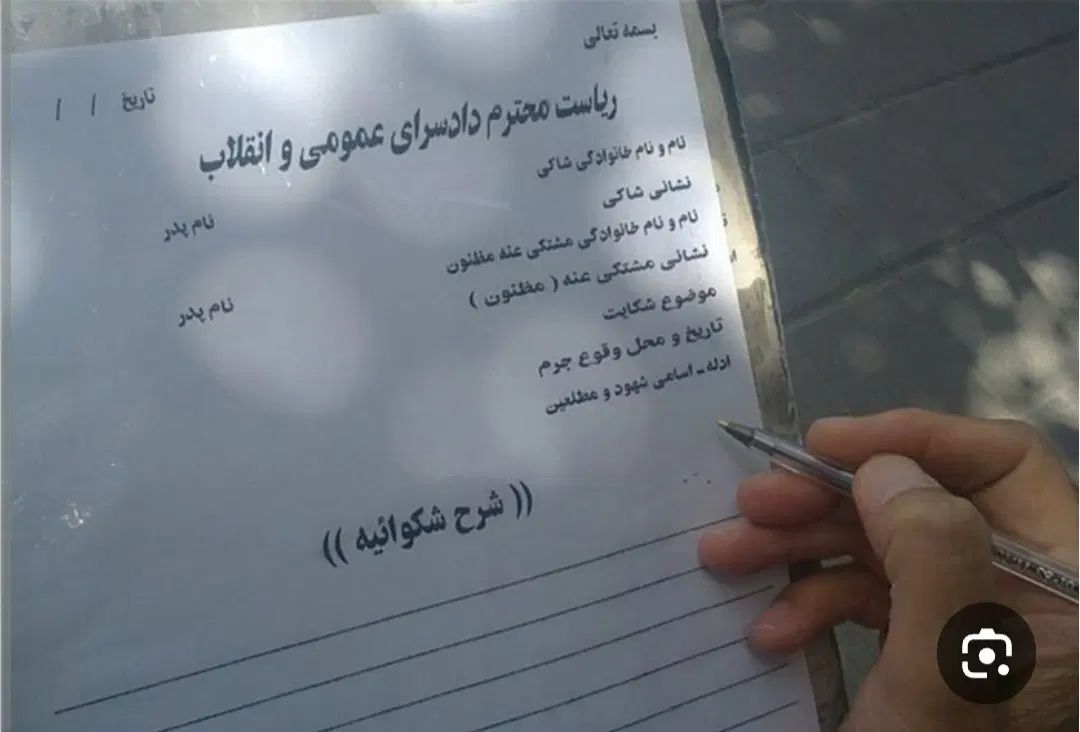 بسمه تعالی
تاریخ / /
ریاست محترم دادسرای عمومی و انقلاب
نام و نام خانوادگی شاکی
نشانی شاکی
نام پدر
نام و نام خانوادگی مشتکی عنه مظنون
نشانی مشتکی عنه ( مظنون )
نام پدر
موضوع شکایت
تاریخ و محل وقوع جرم
ادله ـ اسامی شهود و مطلعین
(( شرح شکوائیه ))